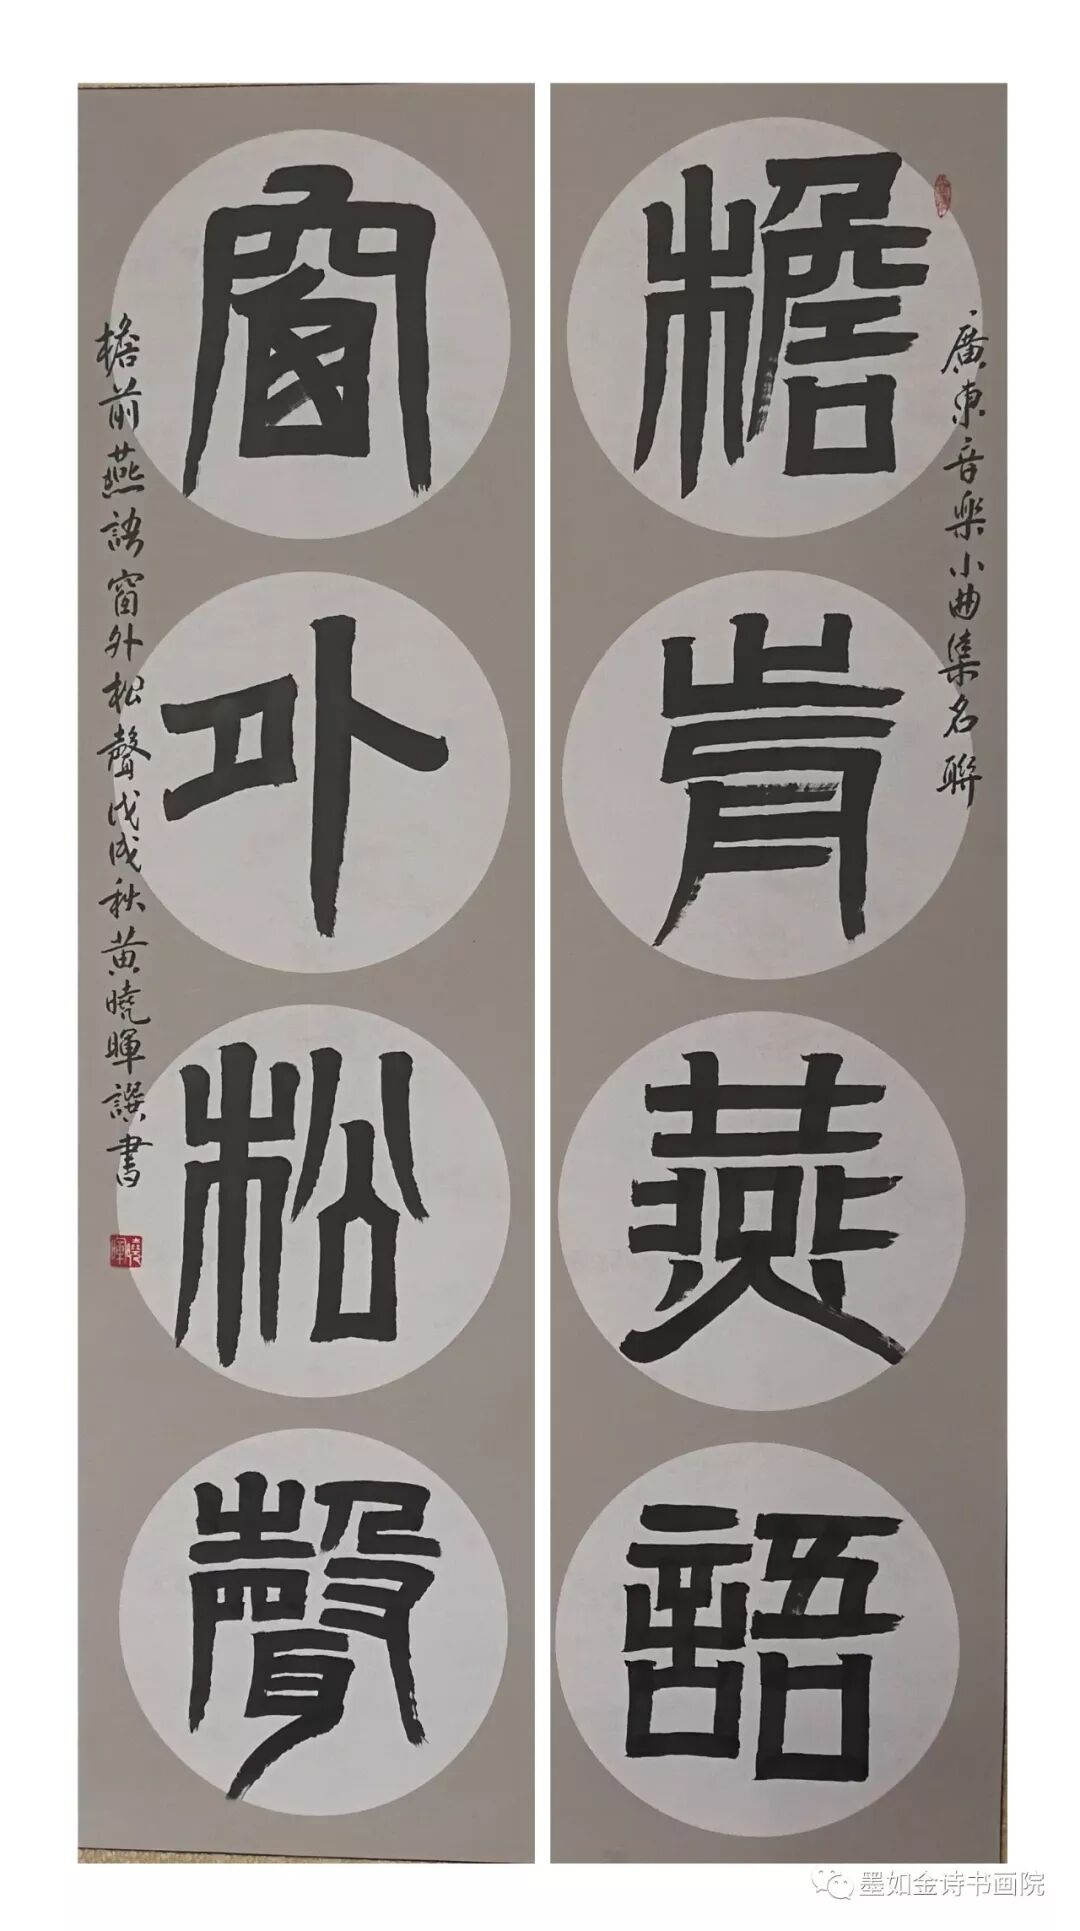 廣東音樂小曲集名聯
檐前燕語
窗外松聲
檐前燕語窗外松聲戊戌秋黄曉暉譔書
曉暉
墨如金诗书画院